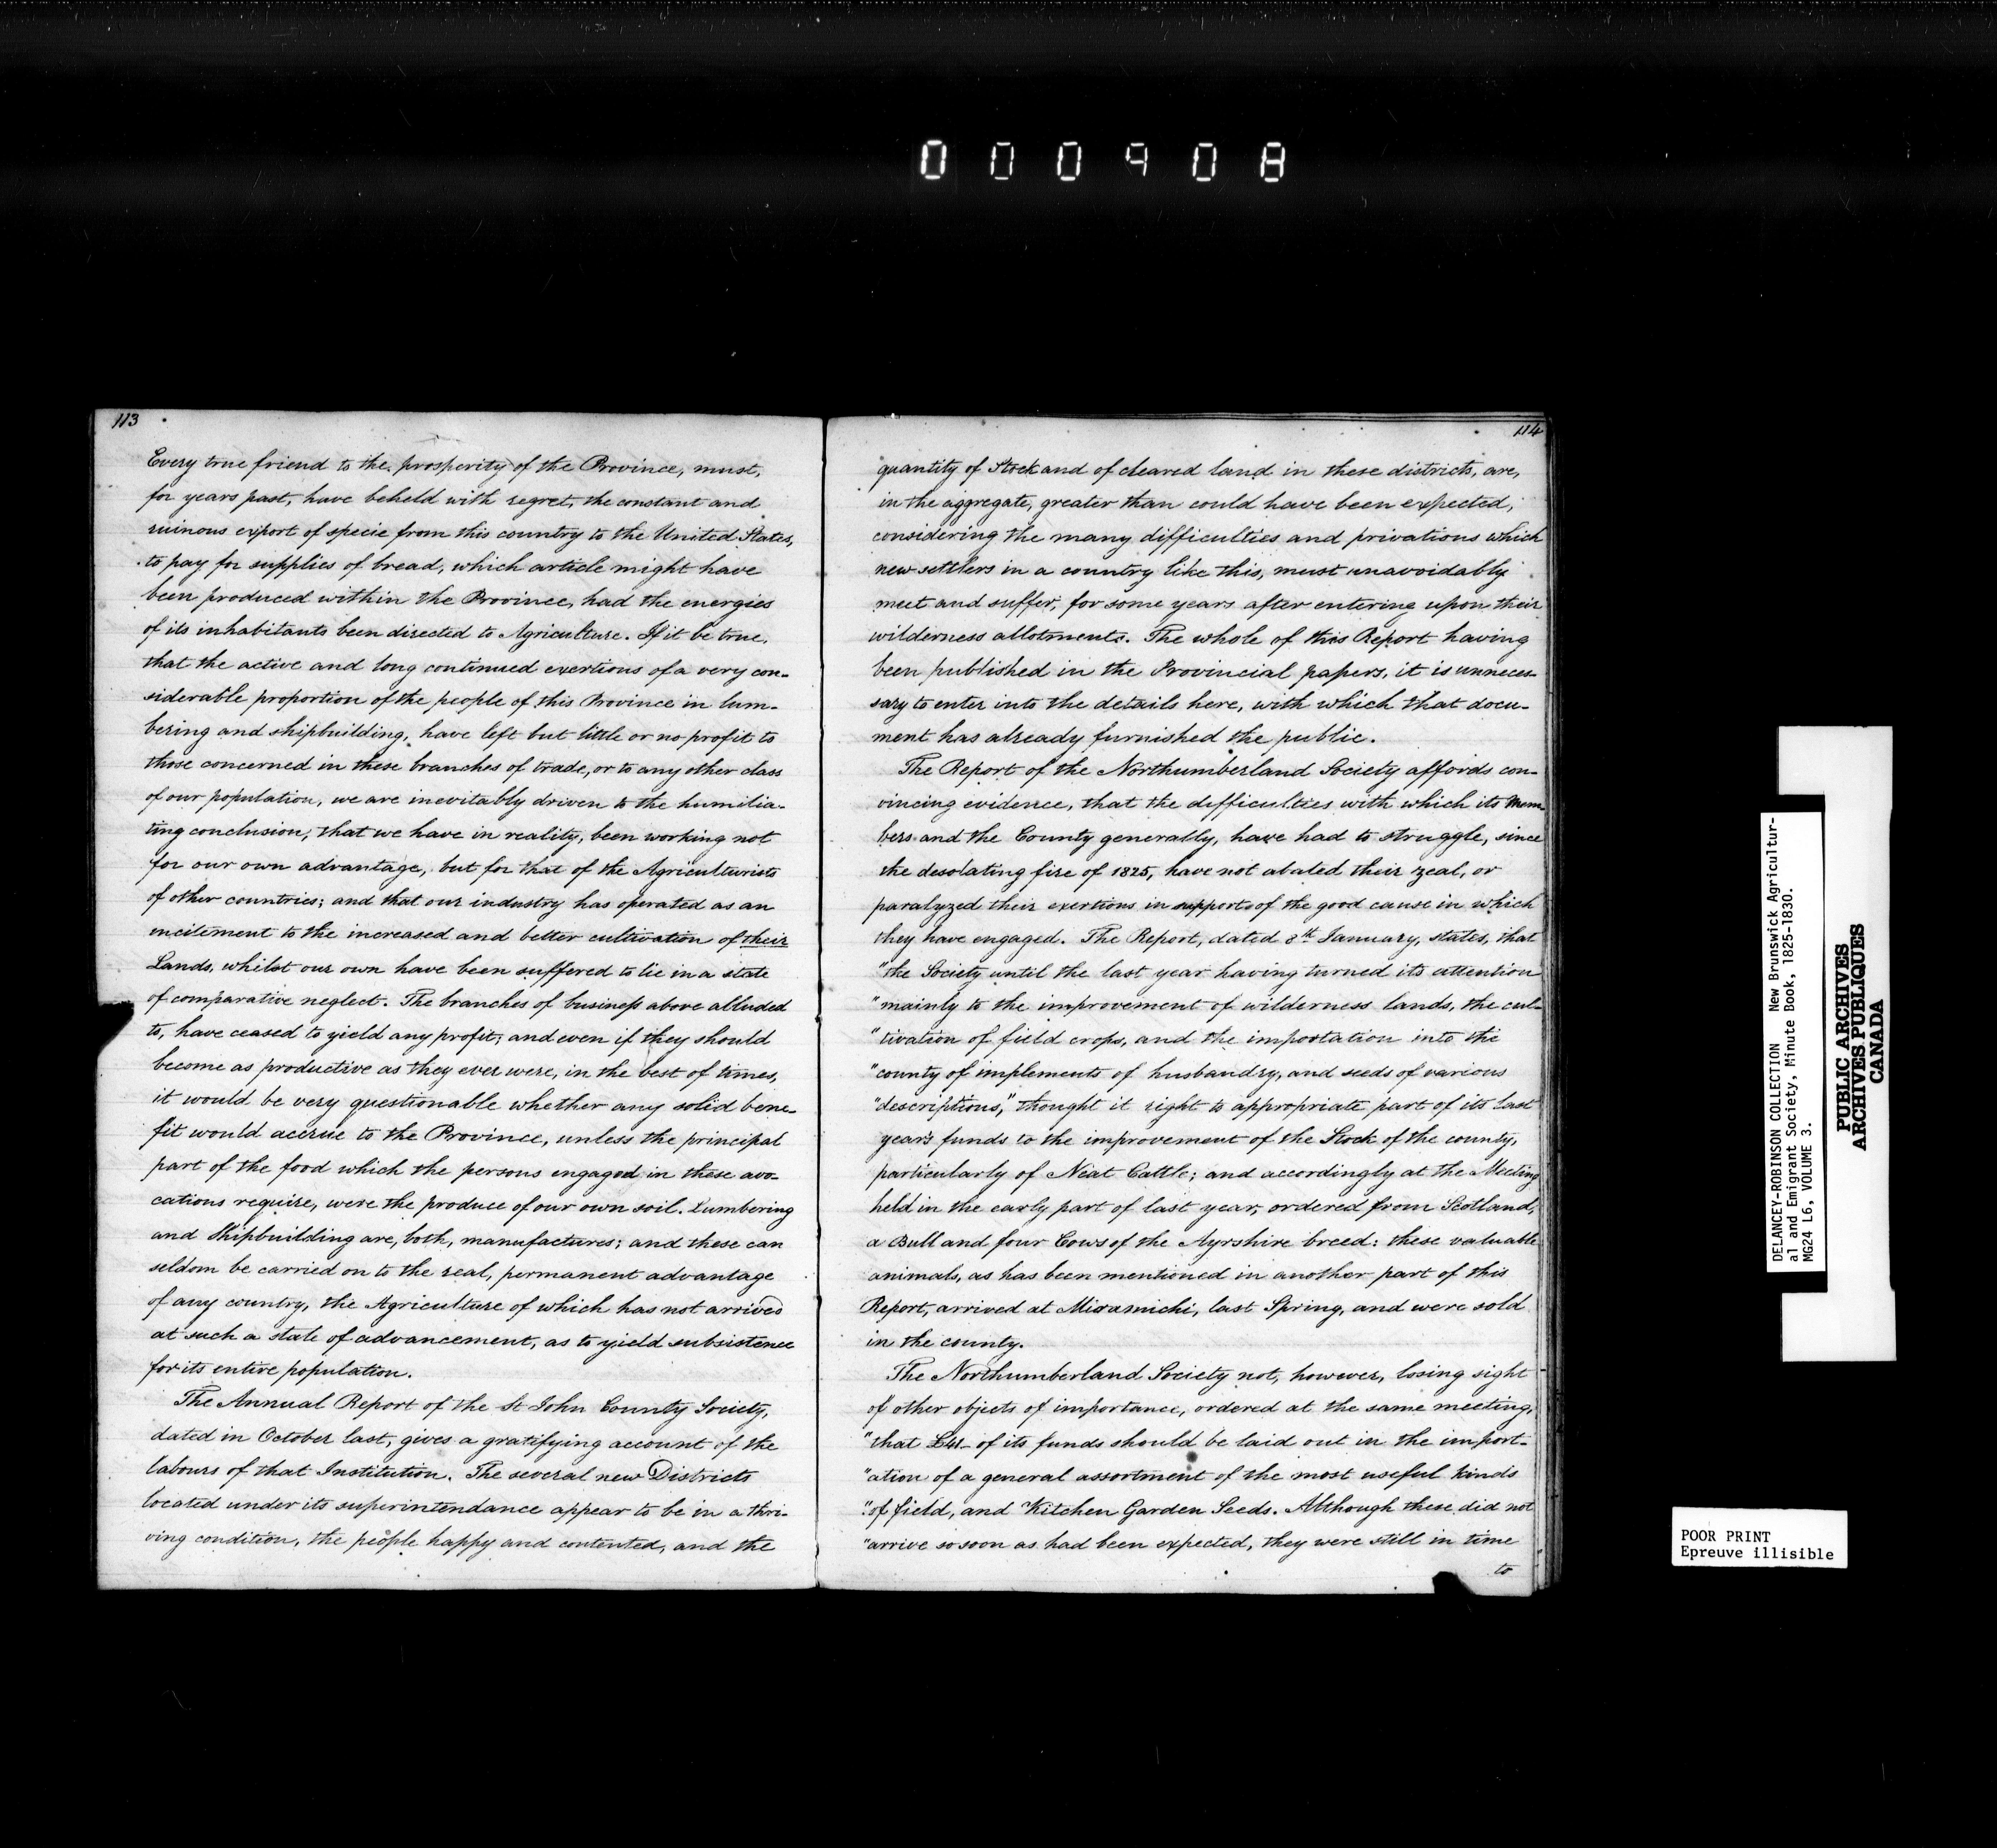 000908
113
Every true friend to the prosperity of the Province, must,
for years past, have beheld with regret, the constant and
ruinous export of specie from this country to the United States,
to pay for supplies of bread, which article might have
been produced within the Province, had the energies
of its inhabitants been directed to Agriculture. If it be true,
that the active and long continued exertions of a very con-
siderable proportion of the people of this Province in lum-
bering and shipbuilding, have left but little or no profit to
those concerned in these branches of trade, or to any other class
of our population, we are inevitably driven to the humilia-
ting conclusion, that we have in reality, been working not
for our own advantage, but for that of the Agriculturists
of other countries; and that our industry has operated as an
incitement to the increased and better cultivation of their
Lands, whilst our own have been suffered to lie in a state
of comparative neglect. The branches of business above alluded
to, have ceased to yield any profit; and even if they should
become as productive as they ever were, in the best of times,
it would be very questionable whether any solid bene-
fit would accrue to the Province, unless the principal
part of the food which the persons engaged in these avo-
cations require, were the produce of our own soil. Lumbering
and Shipbuilding are, both, manufactures; and these can
seldom be carried on to the real, permanent advantage
of any country, the Agriculture of which has not arrived
at such a state of advancement, as to yield subsistence
for its entire population.
The Annual Report of the St John County Society,
dated in October last, gives a gratifying account of the
labours of that Institution. The several new Districts
located under its superintendance appear to be in a thri-
ving condition, the people happy and contented, and the
114
quantity of Stock and of cleared land in these districts, are,
in the aggregate, greater than could have been expected,
considering the many difficulties and privations which
new settlers in a country like this, must unavoidably
meet and suffer, for some years after entering upon their
wilderness allotments. The whole of this Report having
been published in the Provincial papers, it is unneces-
sary to enter into the details here, with which that docu-
ment has already furnished the public.
The Report of the Northumberland Society affords con-
vincing evidence, that the difficulties with which its Mem
bers and the County generally, have had to struggle, since
the desolating fire of 1825, have not abated their zeal, or
paralyzed their exertions in support of the good cause in which
they have engaged. The Report, dated 8th January, states, that
"the Society until the last year having turned its attention
"mainly to the improvement of wilderness lands, the cul-
"tivation of field crops, and the importation into the
"county of implements of husbandry, and seeds of various
"descriptions," thought it right to appropriate part of its last
year's funds to the improvement of the Stock of the county,
particularly of Neat Cattle; and accordingly at the Meeting
held in the early part of last year, ordered from Scotland,
a Bull and four Cows of the Ayrshire breed: these valuable
animals, as has been mentioned in another part of this
Report, arrived at Miramichi, last Spring, and were sold
in the county.
The Northumberland Society not, however, losing sight
of other objects of importance, ordered at the same meeting,
"that £41- of its funds should be laid out in the import-
"ation of a general assortment of the most useful kinds
"of field, and Kitchen Garden Seeds. Although these did not
"arrive so soon as had been expected, they were still in time
to
DELANCEY-ROBINSON COLLECTION New Brunswick Agricultur-
al and Emigrant Society, Minute Book, 1825-1830.
MG24 L6, VOLUME 3.
PUBLIC ARCHIVES
ARCHIVES PUBLIQUES
CANADA
POOR PRINT
Epreuve illisible